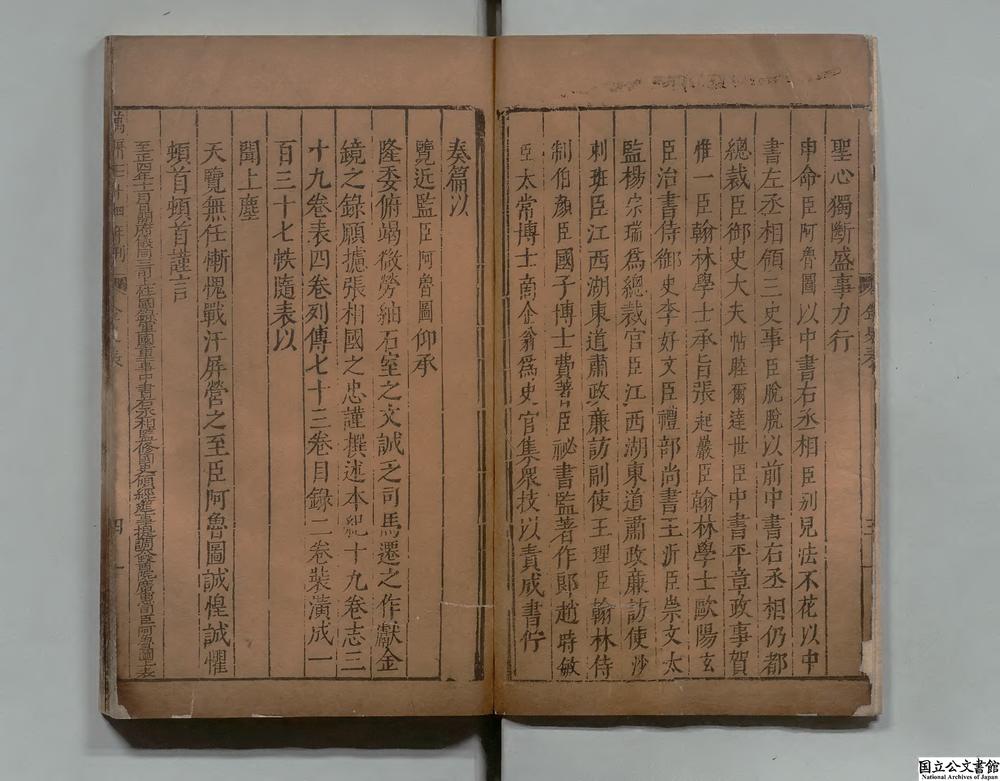 聖心獨斷盛事力行
申命臣阿魯圖以中書右丞相臣别兒怯不花以中
書左丞相領三史事臣脫脫以前中書右丞相仍都
總裁臣御史大夫帖睦爾達世臣中書平章政事賀
惟一臣翰林學士承旨張起巖臣翰林學士歐陽玄
臣治書侍御史李好文臣禮部尚書王沂臣崇文太
監楊宗瑞爲總裁官臣江西湖東道肅政廉訪使沙
剌班臣江西湖東道肅政廉訪副使王理臣翰林侍
制伯顏臣國子博士費著臣祕書監著作郎趙時敏
臣太常博士商企翁爲史官集衆技以責成書佇
奏篇以
覽近監臣阿魯圖仰承
隆委俯竭微勞紬石室之文誠乏司馬遷之作獻金
鏡之錄願攄張相國之忠謹撰述本紀十九卷志三
十九卷表四卷列傳七十三卷目錄二卷裝潢成一
百三十七帙隨表以
聞上塵
天覽無任慚愧戰汗屏營之至臣阿魯圖誠惶誠懼
頓首頓首謹言
至正四年十一月日開府儀同三司上柱國錄軍國重事中書右丞相監修國史領經筵事提調太醫院廣惠司臣阿魯圖上表
四
国立公文書館
National Archives of Japan